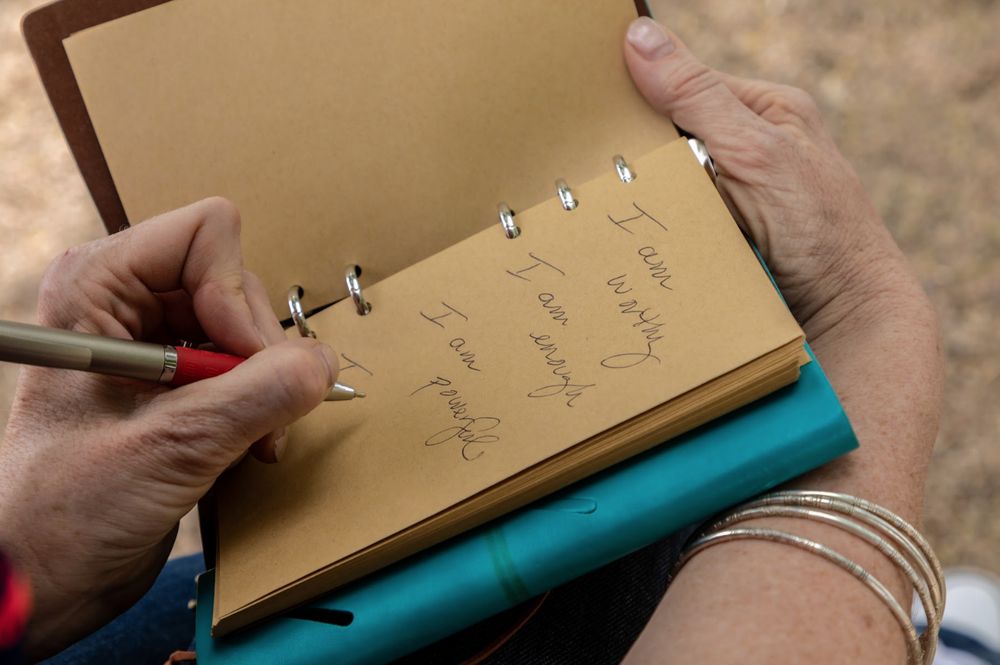 I am
worthy
I am
enough
I am
powerful
I